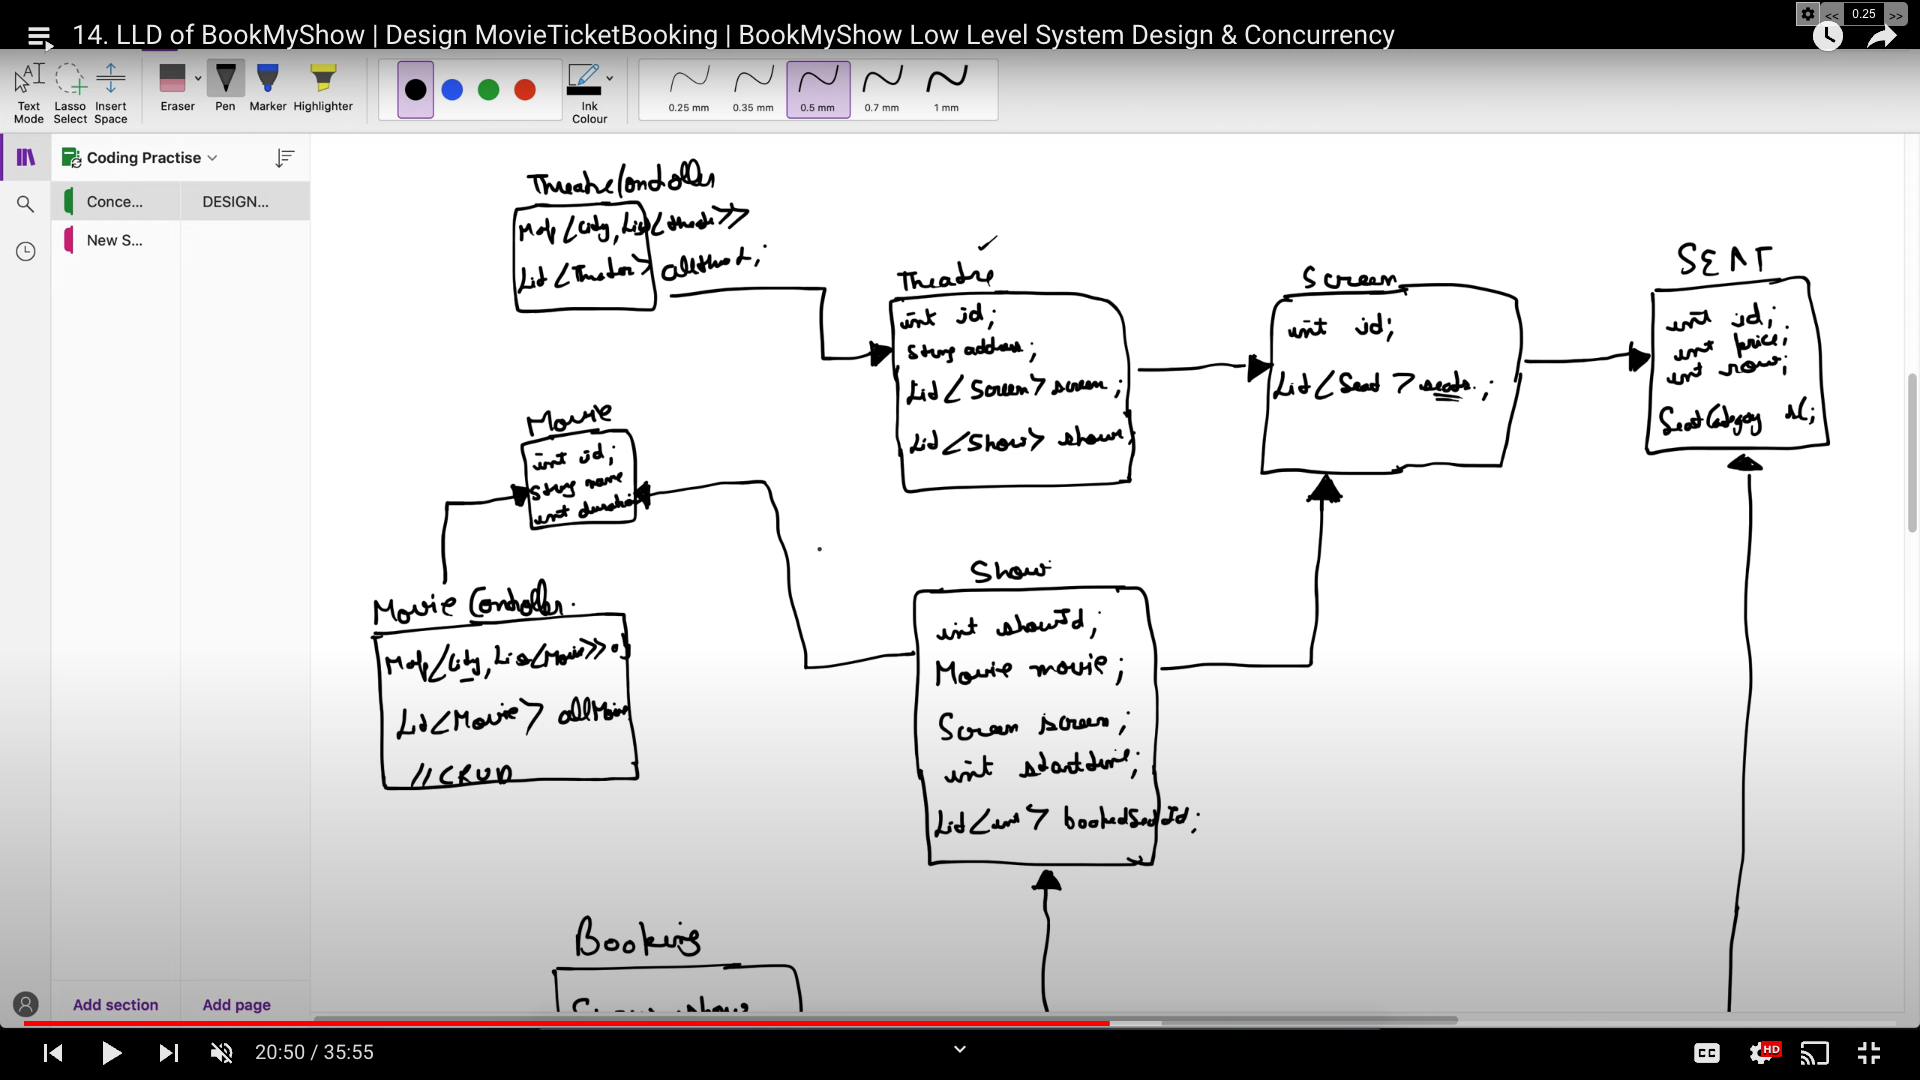 14. LLD of BookMyShow | Design MovieTicketBooking | BookMyShow Low Level System Design & Concurrency
<< 0.25 >>
Text Mode
Lasso Select
Insert Space
Eraser
Pen
Marker
Highlighter
Ink Colour
0.25 mm
0.35 mm
0.5 mm
0.7 mm
1 mm
Coding Practise
Conce...
DESIGN...
New S...
Add section
Add page
TheatreController
Map<City, List<
List<Theatre>
Theatre
int id;
String address;
List<Screen> screen;
List<Show> shows;
Screen
int id;
List<Seat> seats;
SEAT
int id;
int price;
int row;
SeatCategory sC;
Movie
int id;
String name
int duration
Movie Controller
Map<City, List<Movie>>
List<Movie> allMovies
//CRUD
Show
int showId;
Movie movie;
Screen screen;
int startTime;
List<int> bookedSeatId;
Booking
show
20:50 / 35:55
CC
HD